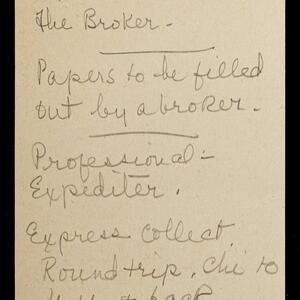 The Broker.-
Papers to be filled
out by a broker.-
Professional-
Expediter.
Express collect.
Round trip. Chi to